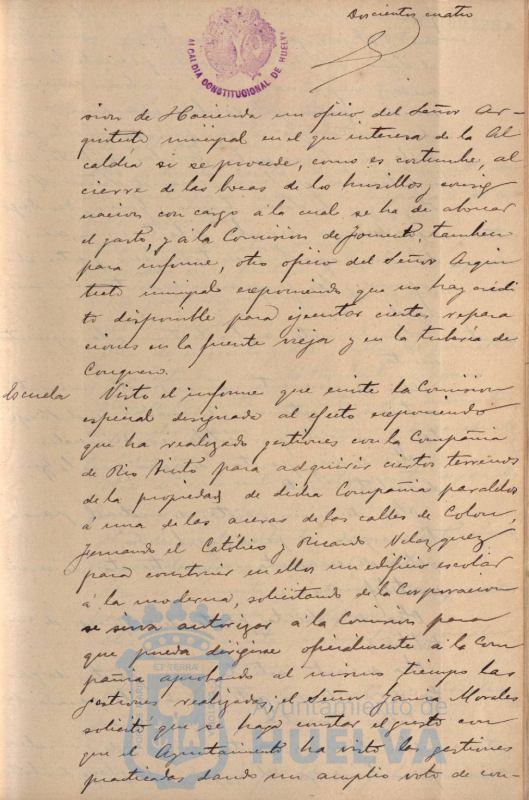 Doscientos cuatro
ALCALDÍA CONSTITUCIONAL DE HUELVA
sion de Hacienda un oficio del Señor Ar-
quitecto municipal en el que interesa de la Al
caldía si se procede, como es costumbre, al
cierre de las bocas de los husillos, consig
nacion con cargo á la cual se ha de abonar
el gasto, y á la Comision de Fomento, tambien
para informe, otro oficio del Señor Arqui
tecto municipal exponiendo que no hay crédi
to disponible para ejecutar ciertas repara
ciones en la fuente vieja y en la tubería de
Conquero.
Escuela
Visto el informe que emite la Comision
especial designada al efecto exponiendo
que ha realizado gestiones con la Compañia
de Rio Tinto para adquirir ciertos terrenos
de la propiedad de dicha Compañia paralelos
á una de las aceras de las calles de Colon,
Fernando el Católico y Ricardo Velazquez
para construir en ellos un edificio escolar
á la moderna, solicitando de la Corporacion
se sirva autorizar á la Comision para
que pueda dirigirse oficialmente á la Com
pañia aprobando al mismo tiempo las
gestiones realizadas, el Señor Garcia Morales
solicitó que se haga constar el gusto con
que el Ayuntamiento ha visto las gestiones
practicadas dando un amplio voto de con-
ET TERRÆ
Ayuntamiento de
HUELVA